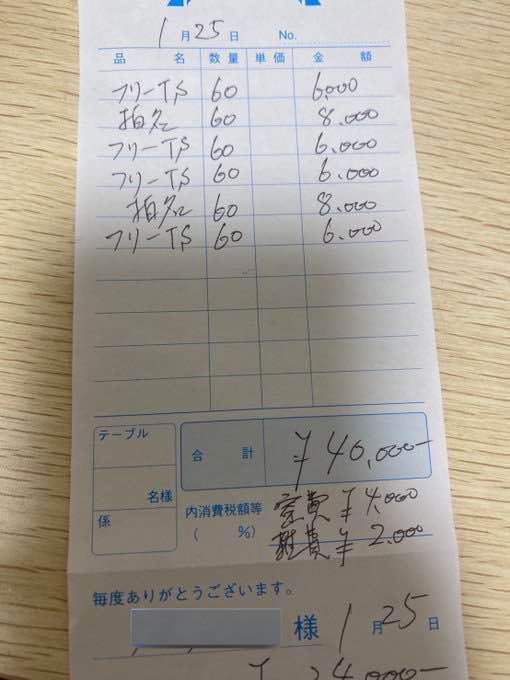 1月25日 No.
品名 数量 単価 金額
フリーTS 60 6,000
指名 60 8.000
フリーTS 60 6.000
フリーTS 60 6.000
指名 60 8.000
フリーTS 60 6.000
テーブル
名様
係
合計 ¥40,000-
内消費税額等
( %)
¥4,000
雑費 ¥2.000
毎度ありがとうございます。
様 1月25日